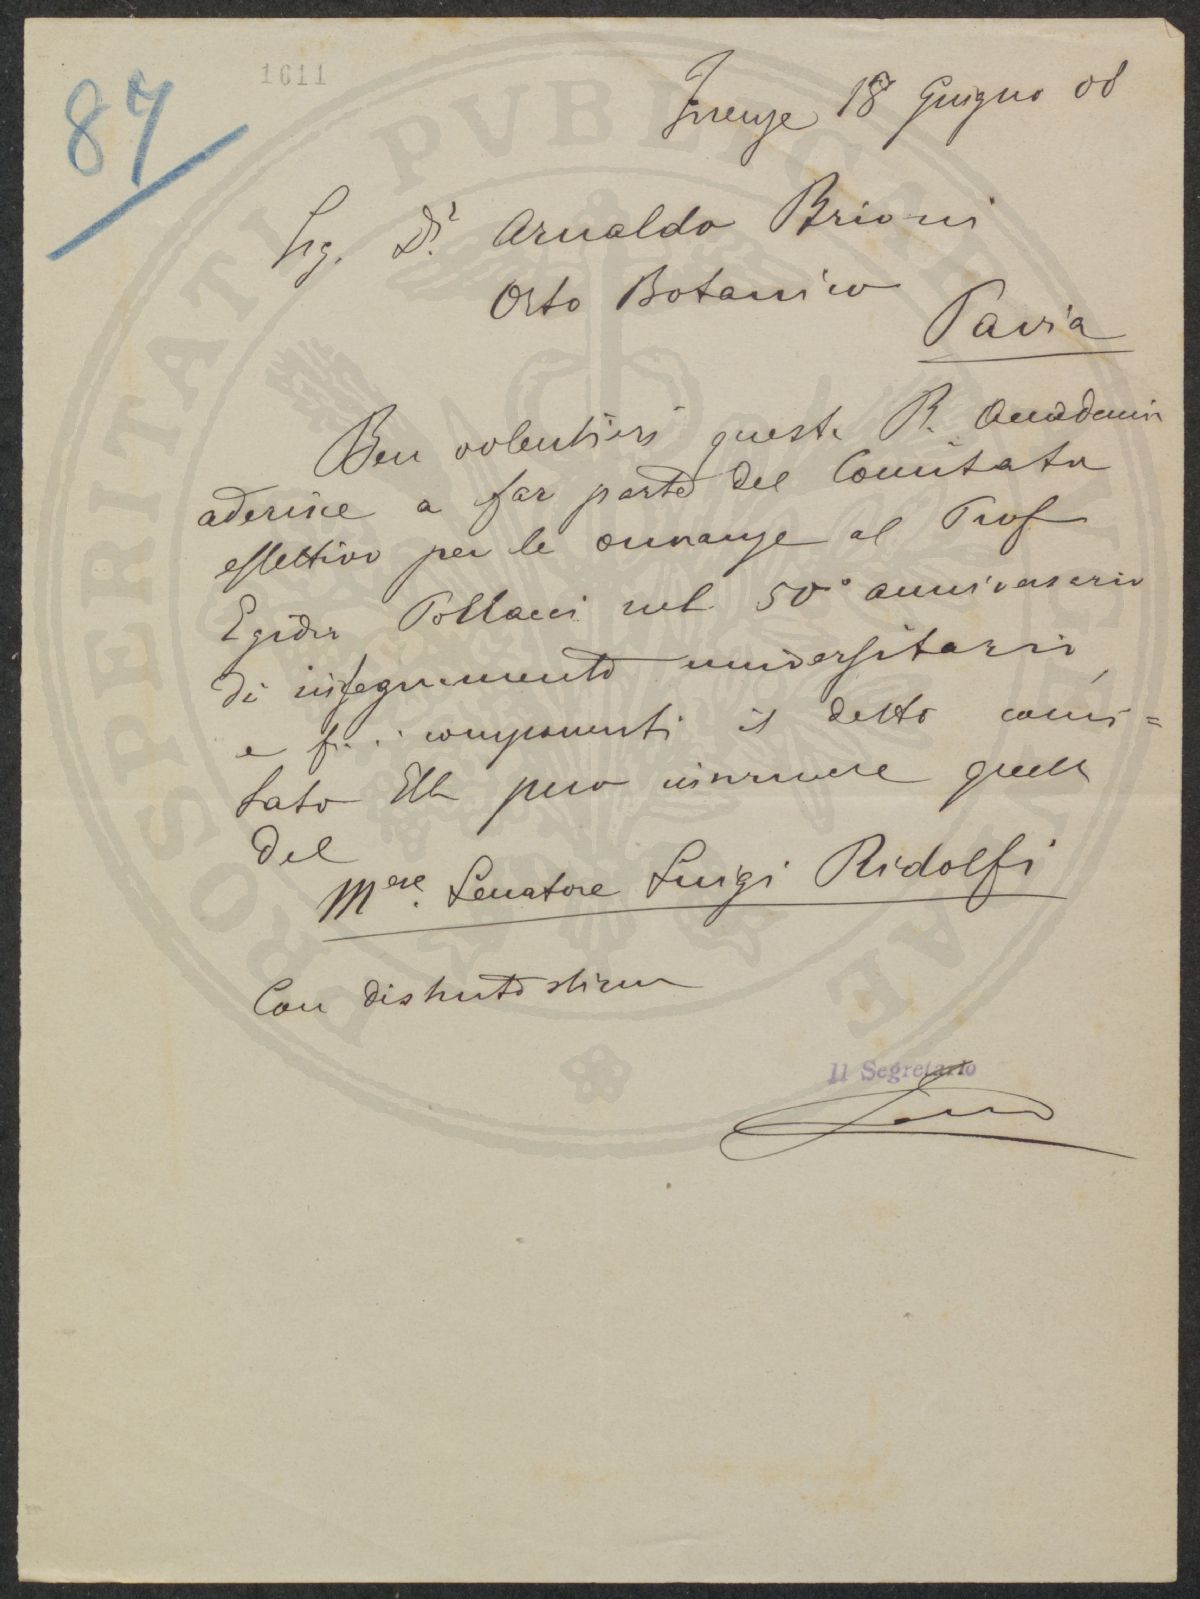 87
1611
Firenze 18 Giugno 08
Sig. Dr. Arnaldo Brioni
Orto Botanico
Pavia
Ben volentieri questa R. Accademia
aderisce a far parte del Comitato
effettivo per le onoranze al Prof
Egidio Pollacci nel 50° anniversario
di insegnamento universitario,
e fra i componenti il detto comi=
tato Ella può inscrivere quello
del
Mse. Senatore Luigi Ridolfi
Con distinta stima
Il Segretario
PROSPERITATI PVBLICAE